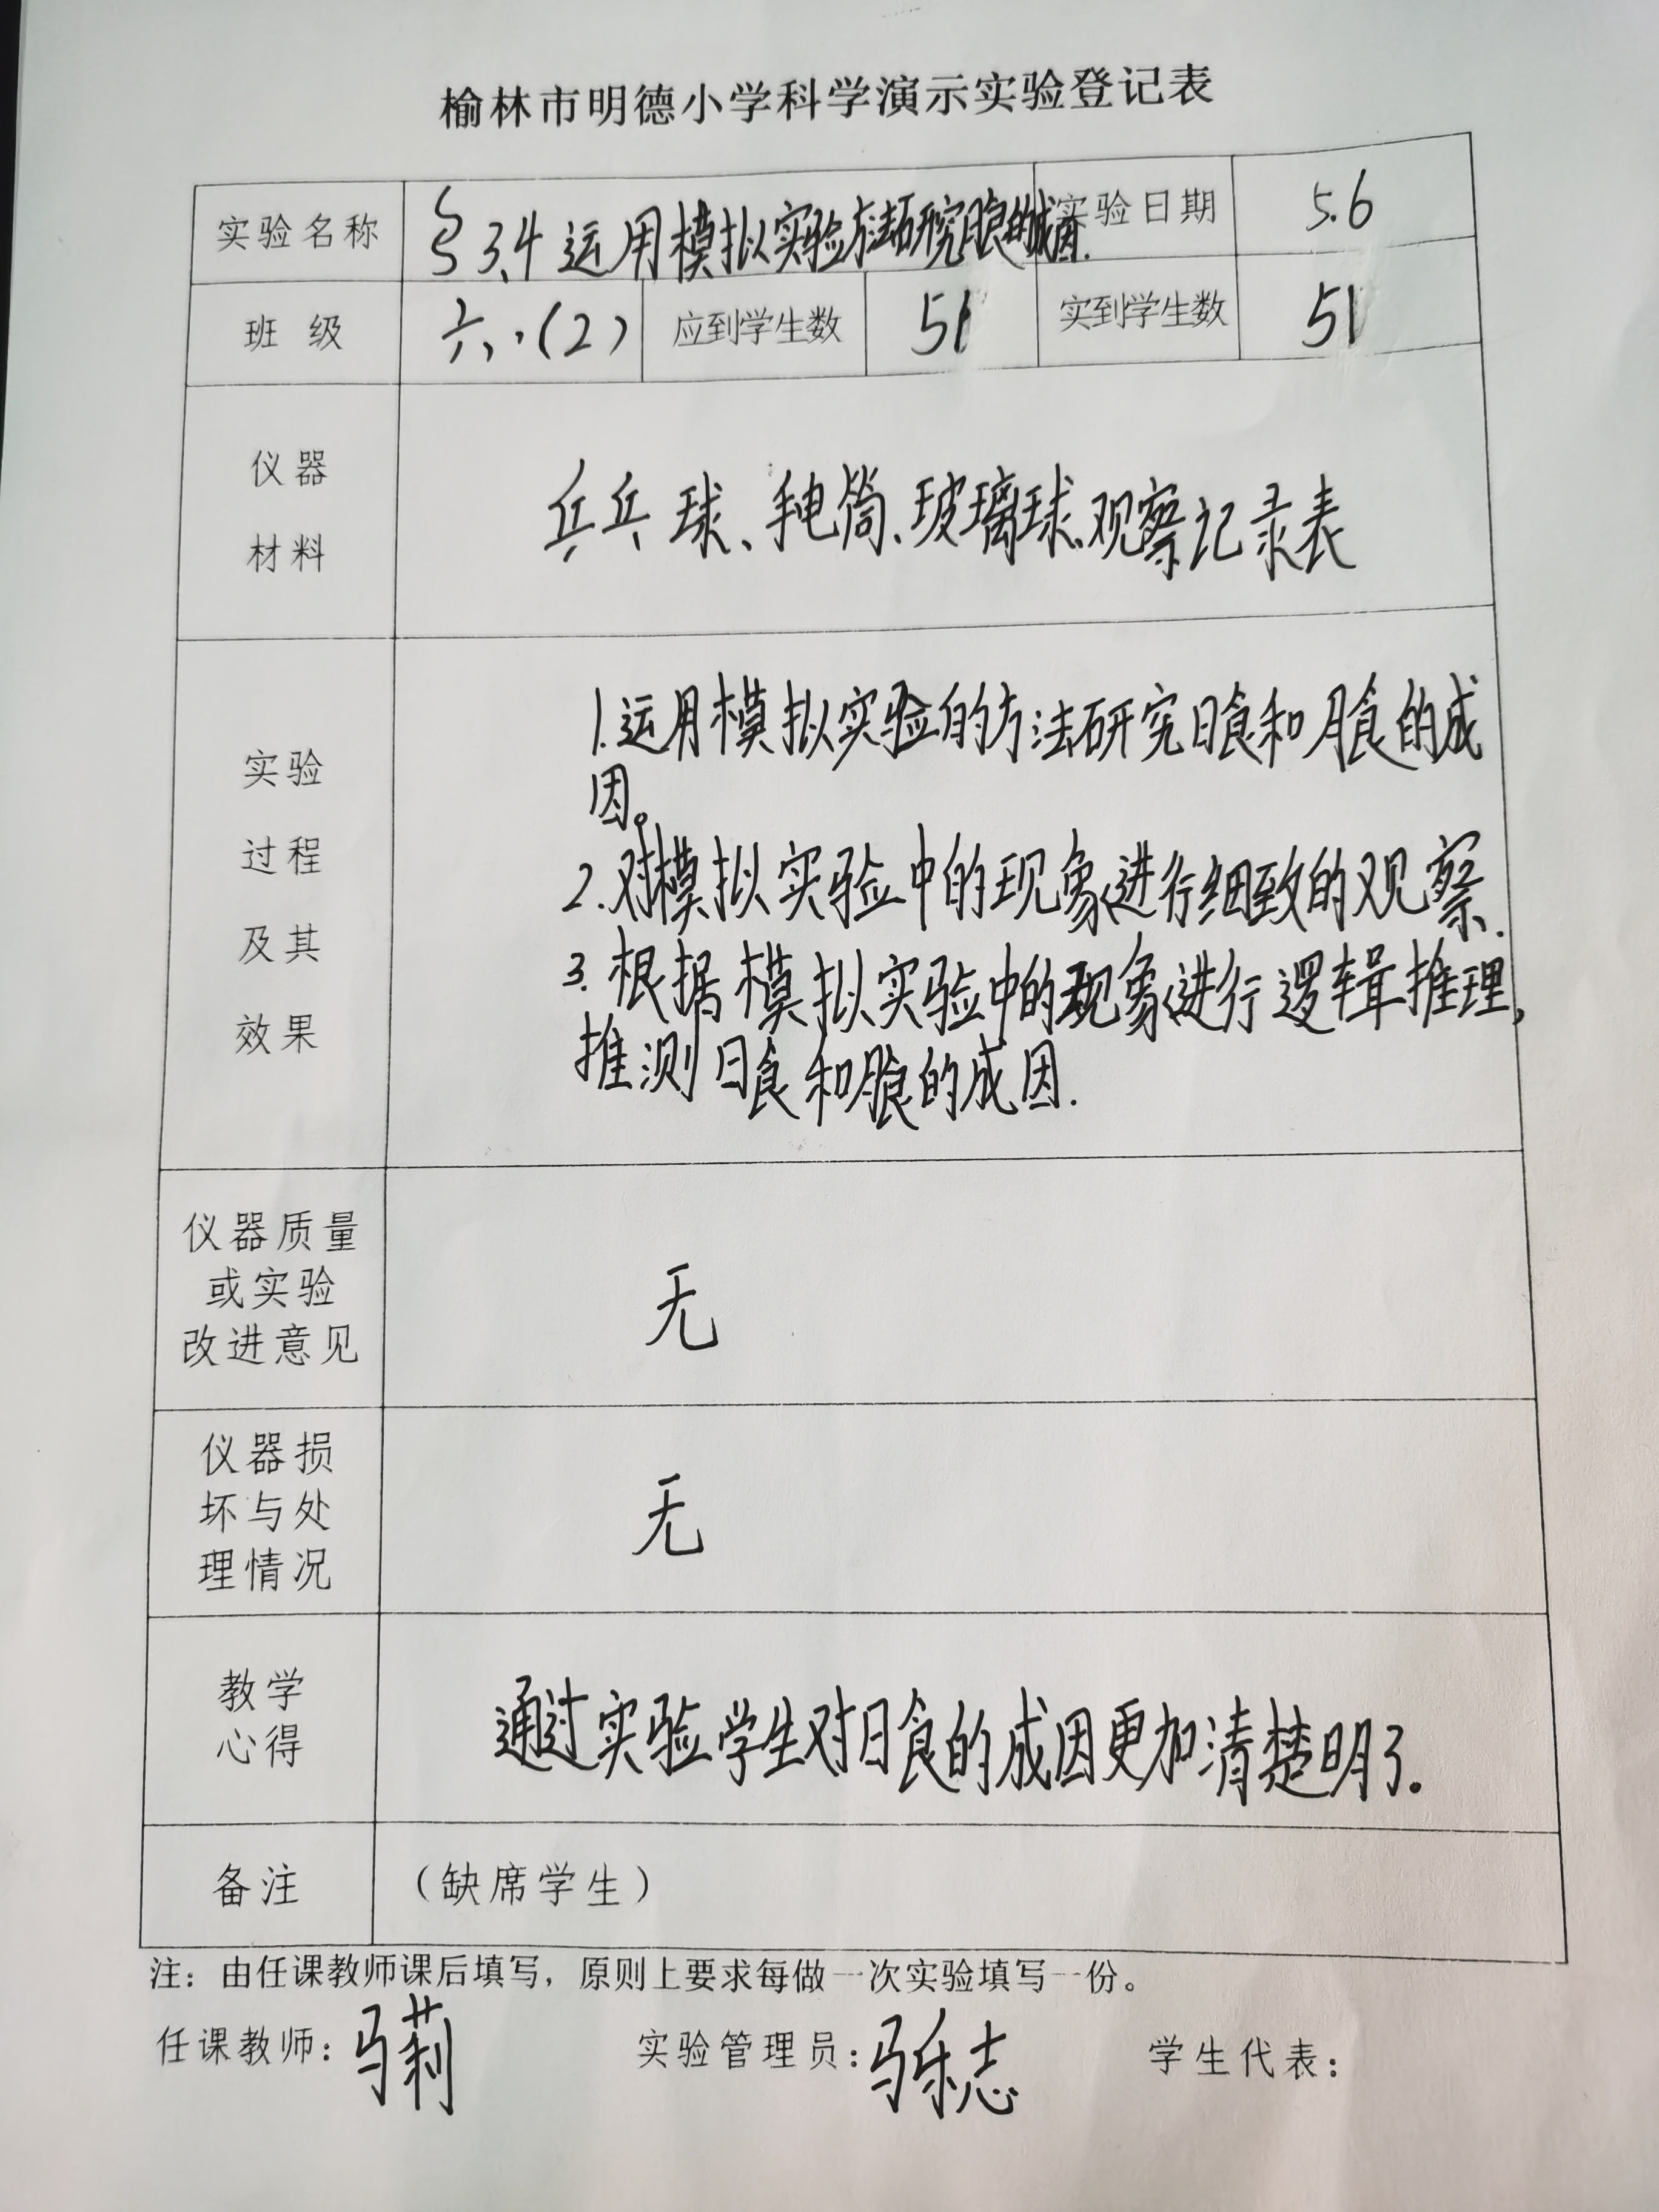 榆林市明德小学科学演示实验登记表
实验名称 §3.4 运用模拟实验方法研究日食的成因. 实验日期 5.6
班 级 六.(2) 应到学生数 51 实到学生数 51
仪器
材料
乒乓球、手电筒、玻璃球、观察记录表
实验
过程
及其
效果
1.运用模拟实验的方法研究日食和月食的成
因。
2.对模拟实验中的现象进行细致的观察.
3.根据模拟实验中的现象进行逻辑推理,
推测日食和月食的成因.
仪器质量
或实验
改进意见
无
仪器损
坏与处
理情况
无
教学
心得
通过实验学生对日食的成因更加清楚明了。
备注 (缺席学生)
注: 由任课教师课后填写, 原则上要求每做一次实验填写一份。
任课教师: 马莉 实验管理员: 马乐志 学生代表: